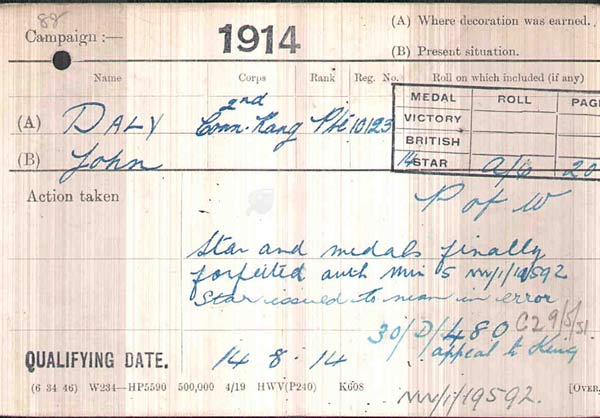 88
Campaign :— 1914 (A) Where decoration was earned.
(B) Present situation.
Name Corps Rank Reg. No. Roll on which included (if any)
MEDAL ROLL PAGE
VICTORY
BRITISH
14 STAR a/6 20
(A) DALY 2nd Conn. Rang Pte 10123
(B) John
P of W
Action taken
Star and medals finally
forfeited auth Min 5 NW/1/19592
Star issued to man in error
30/D/480 C29/5/31
appeal to King
QUALIFYING DATE. 14 8 . 14
(6 34 46) W234—HP5590 500,000 4/19 HWV(P240) K608 [OVER.
NW/1/19592.